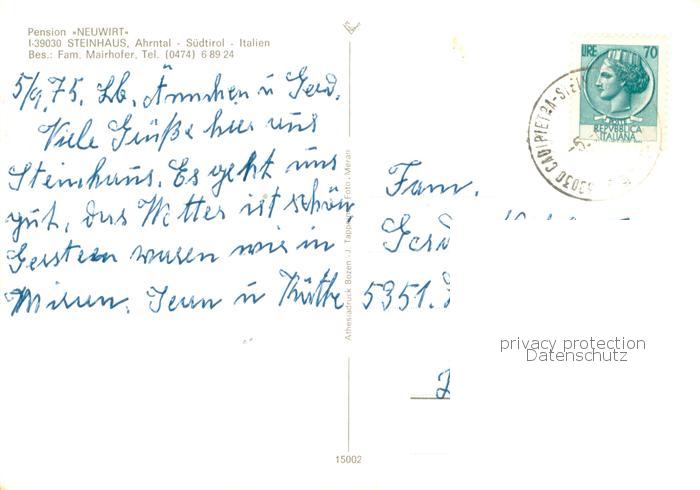 Pension «NEUWIRT»
I-39030 STEINHAUS, Ahrntal - Südtirol - Italien
Bes.: Fam. Mairhofer, Tel. (0474) 6 89 24
5/9.75. Lb. Ännchen u Gerd.
Viele Grüße hier aus
Steinhaus. Es geht uns
gut, das Wetter ist schön
Gestern waren wir in
Jean u Käthe
Athesiadruck Bozen - J. Tappeiner, Foto, Meran
15002
LIRE 70
REPVBBLICA
ITALIANA
39030 CADIPIETRA-STEIN
Fam.
Gerd
5351.
privacy protection
Datenschutz